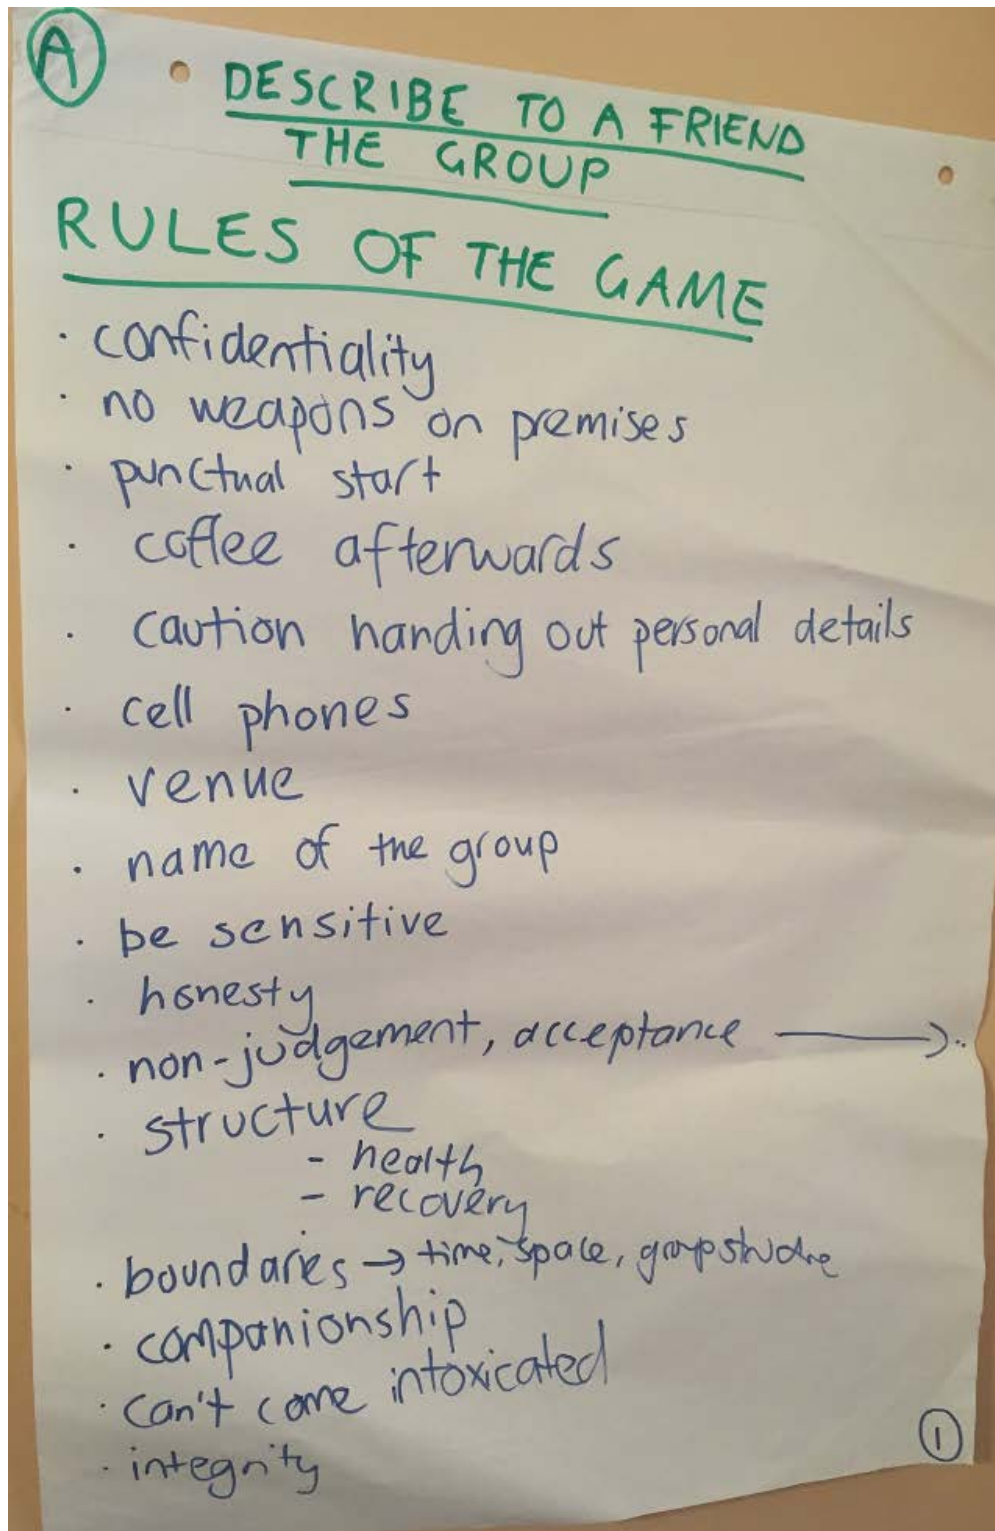 A
• DESCRIBE TO A FRIEND
THE GROUP
RULES OF THE GAME
· confidentiality
· no weapons on premises
· punctual start
· coffee afterwards
· caution handing out personal details
· cell phones
· venue
· name of the group
· be sensitive
· honesty
· non-judgement, acceptance →..
· structure
- health
- recovery
· boundaries → time, space, group
· companionship
· can't come intoxicated
· integrity
1